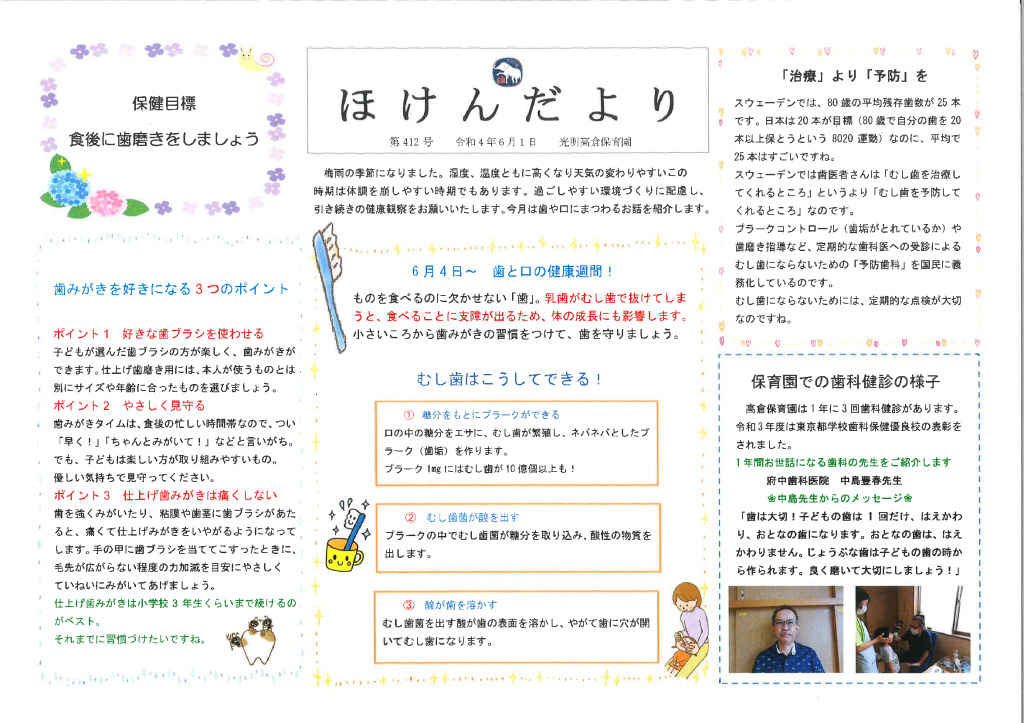 保健目標
食後に歯磨きをしましょう
ほけんだより
第412号　令和4年6月1日　光明高倉保育園
梅雨の季節になりました。湿度、温度ともに高くなり天気の変わりやすいこの
時期は体調を崩しやすい時期でもあります。過ごしやすい環境づくりに配慮し、
引き続きの健康観察をお願いいたします。今月は歯や口にまつわるお話を紹介します。
歯みがきを好きになる3つのポイント
ポイント1　好きな歯ブラシを使わせる
子どもが選んだ歯ブラシの方が楽しく、歯みがきが
できます。仕上げ歯磨き用には、本人が使うものとは
別にサイズや年齢に合ったものを選びましょう。
ポイント2　やさしく見守る
歯みがきタイムは、食後の忙しい時間帯なので、つい
「早く！」「ちゃんとみがいて！」などと言いがち。
でも、子どもは楽しい方が取り組みやすいもの。
優しい気持ちで見守ってください。
ポイント3　仕上げ歯みがきは痛くしない
歯を強くみがいたり、粘膜や歯茎に歯ブラシがあた
ると、痛くて仕上げみがきをいやがるようになって
します。手の甲に歯ブラシを当ててこすったときに、
毛先が広がらない程度の力加減を目安にやさしく
ていねいにみがいてあげましょう。
仕上げ歯みがきは小学校3年生くらいまで続けるの
がベスト。
それまでに習慣づけたいですね。
6月4日～　歯と口の健康週間！
ものを食べるのに欠かせない「歯」。乳歯がむし歯で抜けてしま
うと、食べることに支障が出るため、体の成長にも影響します。
小さいころから歯みがきの習慣をつけて、歯を守りましょう。
むし歯はこうしてできる！
①　糖分をもとにプラークができる
口の中の糖分をエサに、むし歯が繁殖し、ネバネバとしたプ
ラーク（歯垢）を作ります。
プラーク1mgにはむし歯が10億個以上も！
②　むし歯菌が酸を出す
プラークの中でむし歯菌が糖分を取り込み、酸性の物質を
出します。
③　酸が歯を溶かす
むし歯菌を出す酸が歯の表面を溶かし、やがて歯に穴が開
いてむし歯になります。
「治療」より「予防」を
スウェーデンでは、80歳の平均残存歯数が25本
です。日本は20本が目標（80歳で自分の歯を20
本以上保とうという8020運動）なのに、平均で
25本はすごいですね。
スウェーデンでは歯医者さんは「むし歯を治療し
てくれるところ」というより「むし歯を予防して
くれるところ」なのです。
プラークコントロール（歯垢がとれているか）や
歯磨き指導など、定期的な歯科医への受診による
むし歯にならないための「予防歯科」を国民に義
務化しているのです。
むし歯にならないためには、定期的な点検が大切
なのですね。
保育園での歯科健診の様子
高倉保育園は1年に3回歯科健診があります。
令和3年度は東京都学校歯科保健優良校の表彰を
されました。
1年間お世話になる歯科の先生をご紹介します
府中歯科医院　中島豊春先生
❀中島先生からのメッセージ❀
「歯は大切！子どもの歯は1回だけ、はえかわ
り、おとなの歯になります。おとなの歯は、はえ
かわりません。じょうぶな歯は子どもの歯の時か
ら作られます。良く磨いて大切にしましょう！」